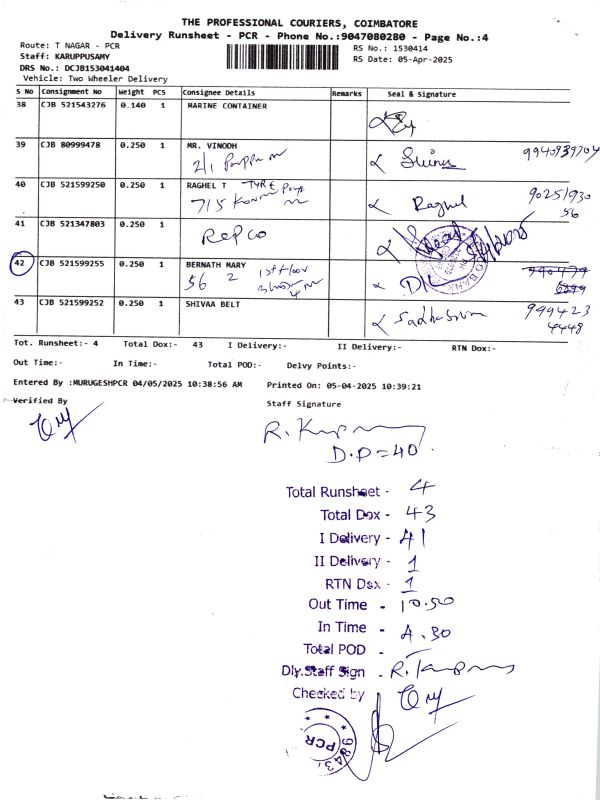 THE PROFESSIONAL COURIERS, COIMBATORE
Delivery Runsheet - PCR - Phone No.:9047080280 - Page No.:4
Route: T NAGAR - PCR
RS No.: 1530414
Staff: KARUPPUSAMY
RS Date: 05-Apr-2025
DRS No.: DCJB153041404
Vehicle: Two Wheeler Delivery
S No Consignment No Weight PCS Consignee Details Remarks Seal & Signature
38 CJB 521543276 0.140 1 MARINE CONTAINER
39 CJB 80999478 0.250 1 MR. VINODH
2/1
9940939704
40 CJB 521599250 0.250 1 RAGHEL T TYRE
715
Raghel 90251930
56
41 CJB 521347803 0.250 1
REPCO
42 CJB 521599255 0.250 1 BERNATH MARY
56 2 1st floor
43 CJB 521599252 0.250 1 SHIVAA BELT
999423
4448
Tot. Runsheet:- 4 Total Dox:- 43 I Delivery:- II Delivery:- RTN Dox:-
Out Time:- In Time:- Total POD:- Delvy Points:-
Entered By :MURUGESHPCR 04/05/2025 10:38:56 AM Printed On: 05-04-2025 10:39:21
Verified By Staff Signature
D.P=40
Total Runsheet - 4
Total Dox - 43
I Delivery - 41
II Delivery - 1
RTN Dox - 1
Out Time - 10.50
In Time - 4.30
Total POD -
Dly.Staff Sign -
Checked by
PCR